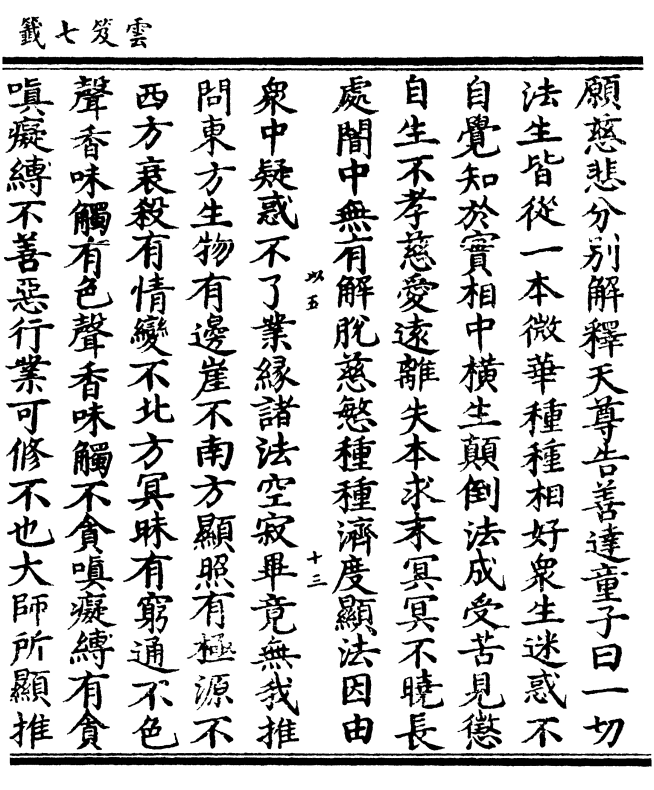 雲笈七籤
願慈悲分別解釋天尊告善達童子曰一切
法生皆從一本微華種種相好衆生迷惑不
自覺知於實相中橫生顛倒法成受苦見愆
自生不孝慈愛遠離失本求末冥冥不曉長
處闇中無有解脫慈愍種種濟度顯法因由
以五
十三
衆中疑惑不了業緣諸法空寂畢竟無我推
問東方生物有邊崖不南方顯照有極源不
西方衰殺有情變不北方冥昧有窮通不色
聲香味觸有色聲香味觸不貪嗔癡縛有貪
嗔癡縛不善惡行業可修不也大師所顯推